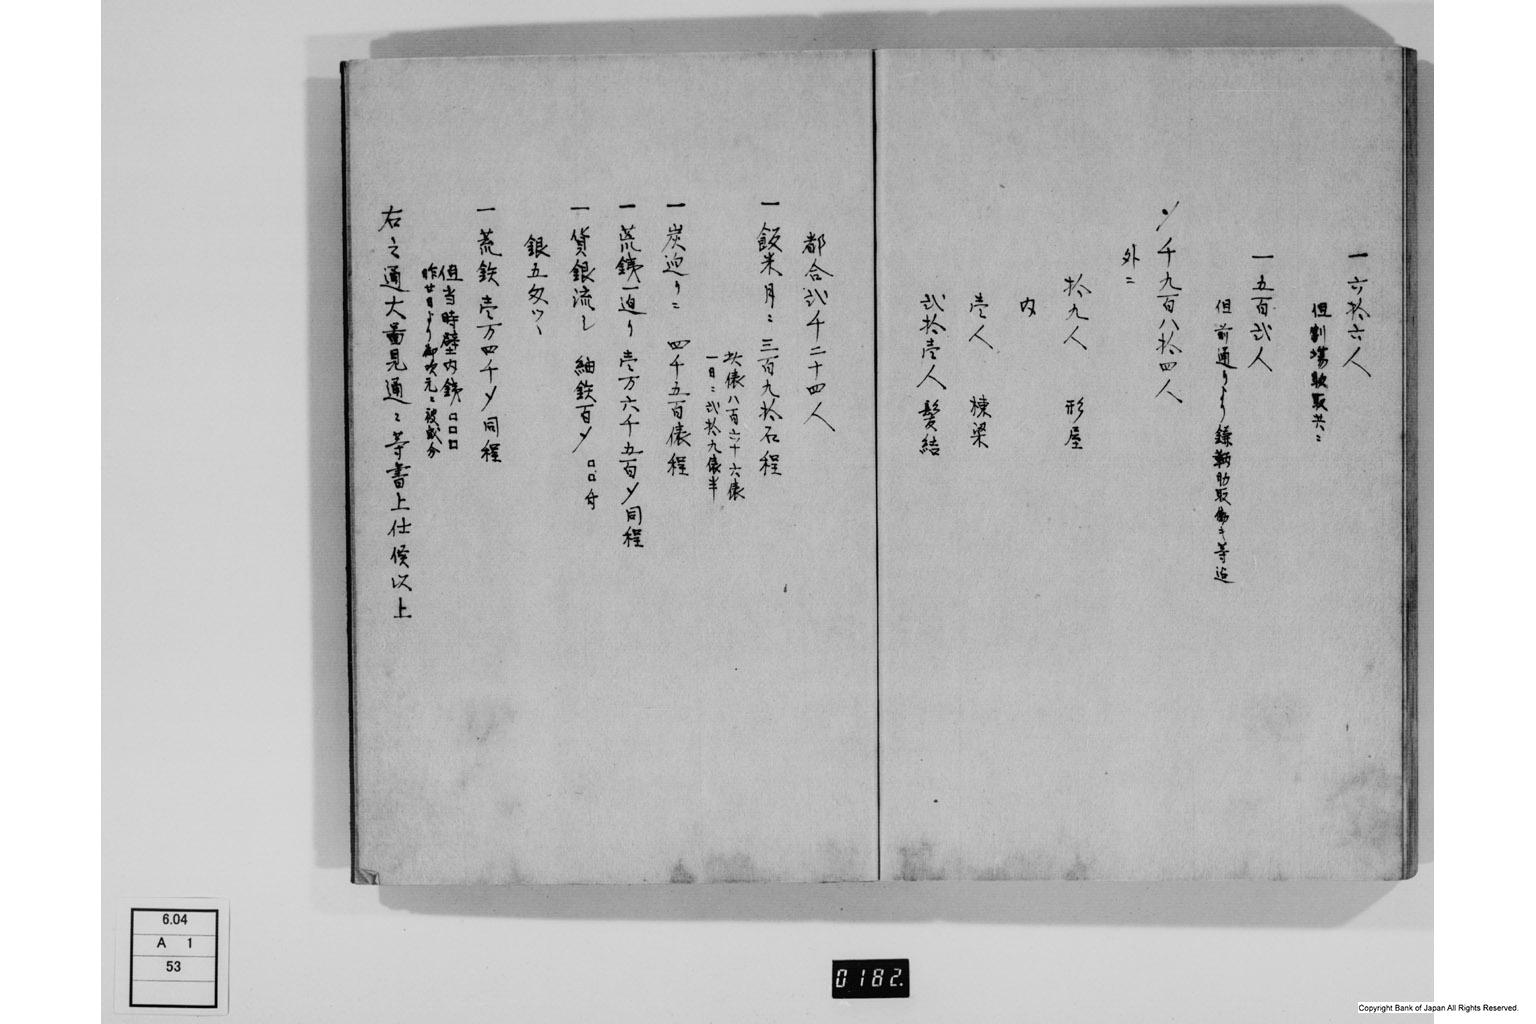 一六拾六人
但割場
一五百弐人
但前通りより
〆千九百八拾四人
外ニ
拾九人 形屋
内
壱人 棟梁
弐拾壱人 髪結
都合弐千二十四人
一飯米月ニ三百九拾石程
此俵八百六十六俵
一日ニ弐拾九俵半
一炭迫りニ四千五百俵程
一荒銕一迫り壱万六千五百〆同程
一貸銀流し 紬鉄百〆 □□分
銀五匁ツヽ
一荒鉄壱万四千〆同程
但当時壁内銕□□□
右之通大畧見通ニ等書上仕候以上
6.04
A 1
53
0182.
Copyright Bank of Japan All Rights Reserved.